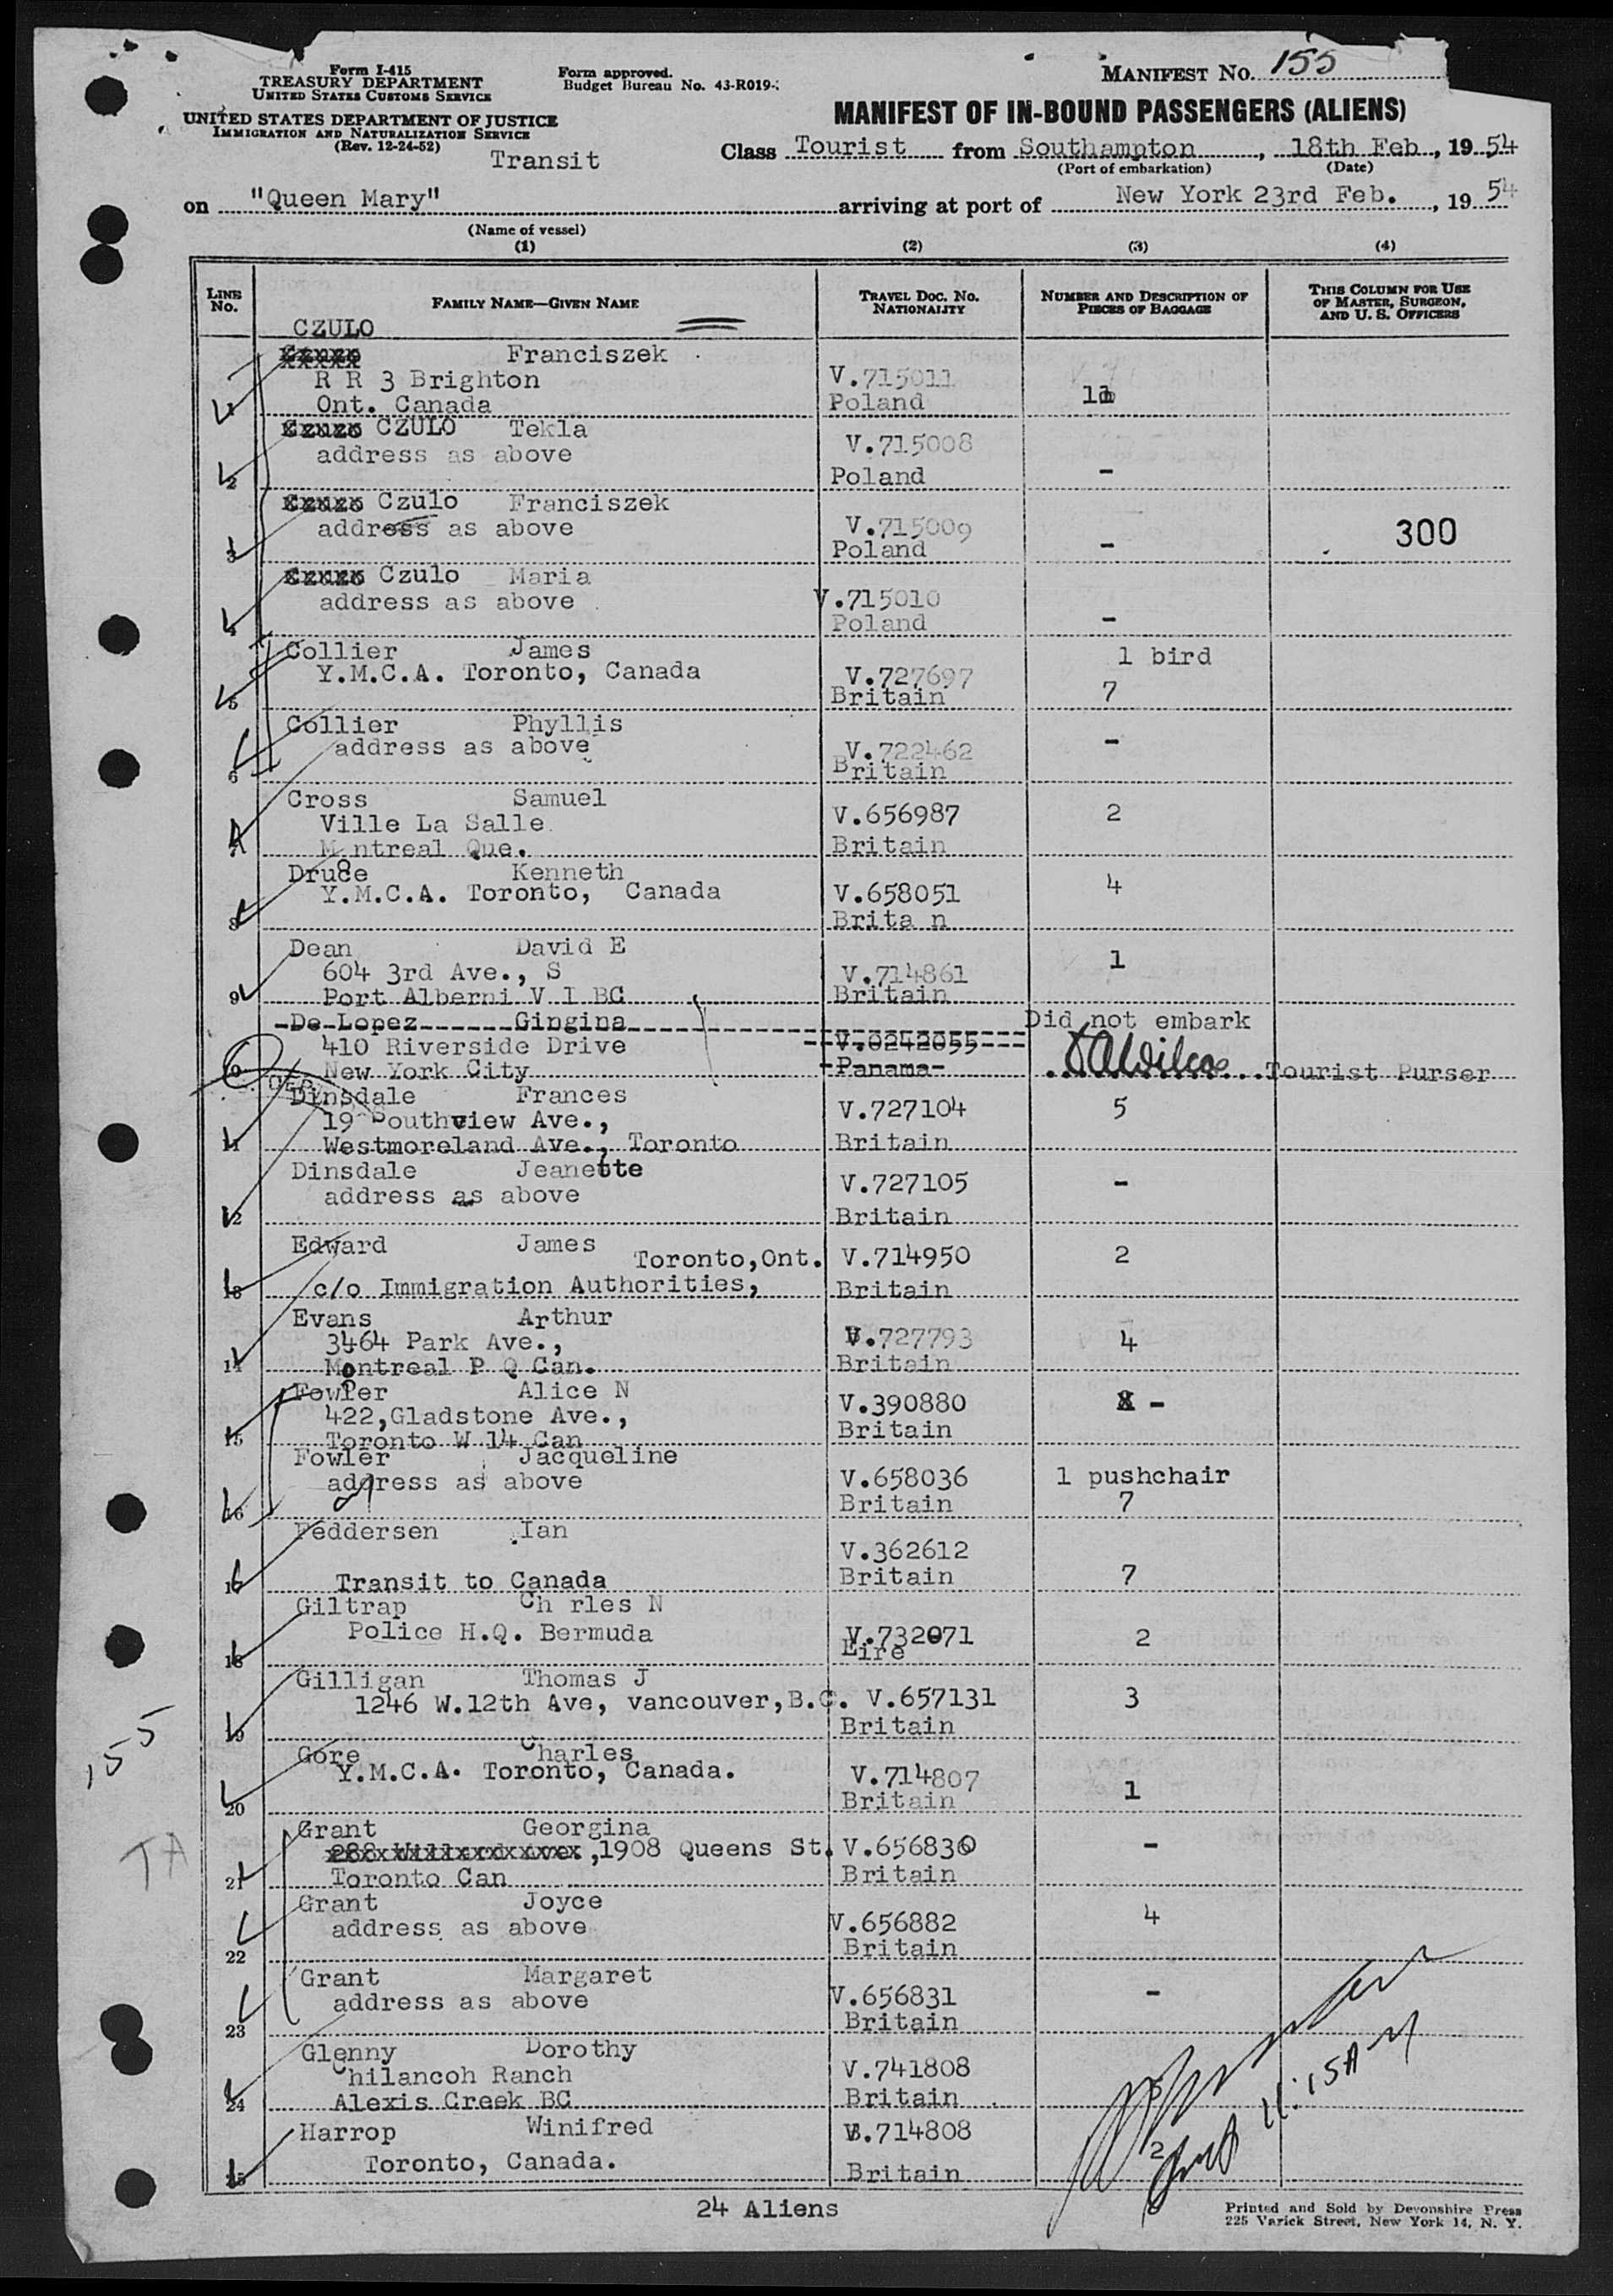 Form I-415
TREASURY DEPARTMENT
UNITED STATES CUSTOMS SERVICE
UNITED STATES DEPARTMENT OF JUSTICE
IMMIGRATION AND NATURALIZATION SERVICE
(Rev. 12-24-52)
Form approved.
Budget Bureau No. 43-R019-
MANIFEST NO. 155
MANIFEST OF IN-BOUND PASSENGERS (ALIENS)
Transit
Class Tourist from Southampton, 18th Feb, 1954
(Port of embarkation) (Date)
on "Queen Mary" arriving at port of New York 23rd Feb., 1954
(Name of vessel)
(1) (2) (3) (4)
LINE NO. FAMILY NAME—GIVEN NAME TRAVEL DOC. NO. NATIONALITY NUMBER AND DESCRIPTION OF PIECES OF BAGGAGE THIS COLUMN FOR USE OF MASTER, SURGEON, AND U. S. OFFICERS
CZULO
Franciszek
R R 3 Brighton V.715011
Ont. Canada Poland 11
CZULO Tekla
address as above V.715008
2 Poland -
Czulo Franciszek
address as above V.715009 300
3 Poland -
Czulo Maria
address as above V.715010
4 Poland -
Collier James 1 bird
Y.M.C.A. Toronto, Canada V.727697
5 Britain 7
Collier Phyllis
address as above V.722462 -
6 Britain
Cross Samuel
Ville La Salle V.656987 2
M ntreal Que. Britain
Druce Kenneth
Y.M.C.A. Toronto, Canada V.658051 4
8 Brita n
Dean David E
604 3rd Ave., S V.714861 1
9 Port Alberni V I BC Britain
De Lopez Gingina Did not embark
410 Riverside Drive V.0242055
New York City Panama JAWilcox Tourist Purser
Dinsdale Frances
19 Southview Ave., V.727104 5
11 Westmoreland Ave., Toronto Britain
Dinsdale Jeanette
address as above V.727105 -
12 Britain
Edward James
Toronto,Ont. V.714950 2
13 c/o Immigration Authorities, Britain
Evans Arthur
3464 Park Ave., V.727793 4
14 Montreal P Q Can. Britain
Fowler Alice N
422,Gladstone Ave., V.390880 -
15 Toronto W 14 Can Britain
Fowler Jacqueline
address as above V.658036 1 pushchair
16 Britain 7
Feddersen Ian
V.362612
17 Transit to Canada Britain 7
Giltrap Ch rles N
Police H.Q. Bermuda V.732071 2
18 Eire
Gilligan Thomas J
1246 W.12th Ave, vancouver,B.C. V.657131 3
19 Britain
Gore Charles
Y.M.C.A. Toronto, Canada. V.714807
20 Britain 1
Grant Georgina
,1908 Queens St. V.656830 -
21 Toronto Can Britain
Grant Joyce
address as above V.656882 4
22 Britain
Grant Margaret
address as above V.656831 -
23 Britain
Glenny Dorothy
Chilancoh Ranch V.741808 5
24 Alexis Creek BC Britain
Harrop Winifred V.714808
Toronto, Canada. 2
25 Britain
11:15AM
155
TA
24 Aliens
Printed and Sold by Devonshire Press
225 Varick Street, New York 14, N. Y.